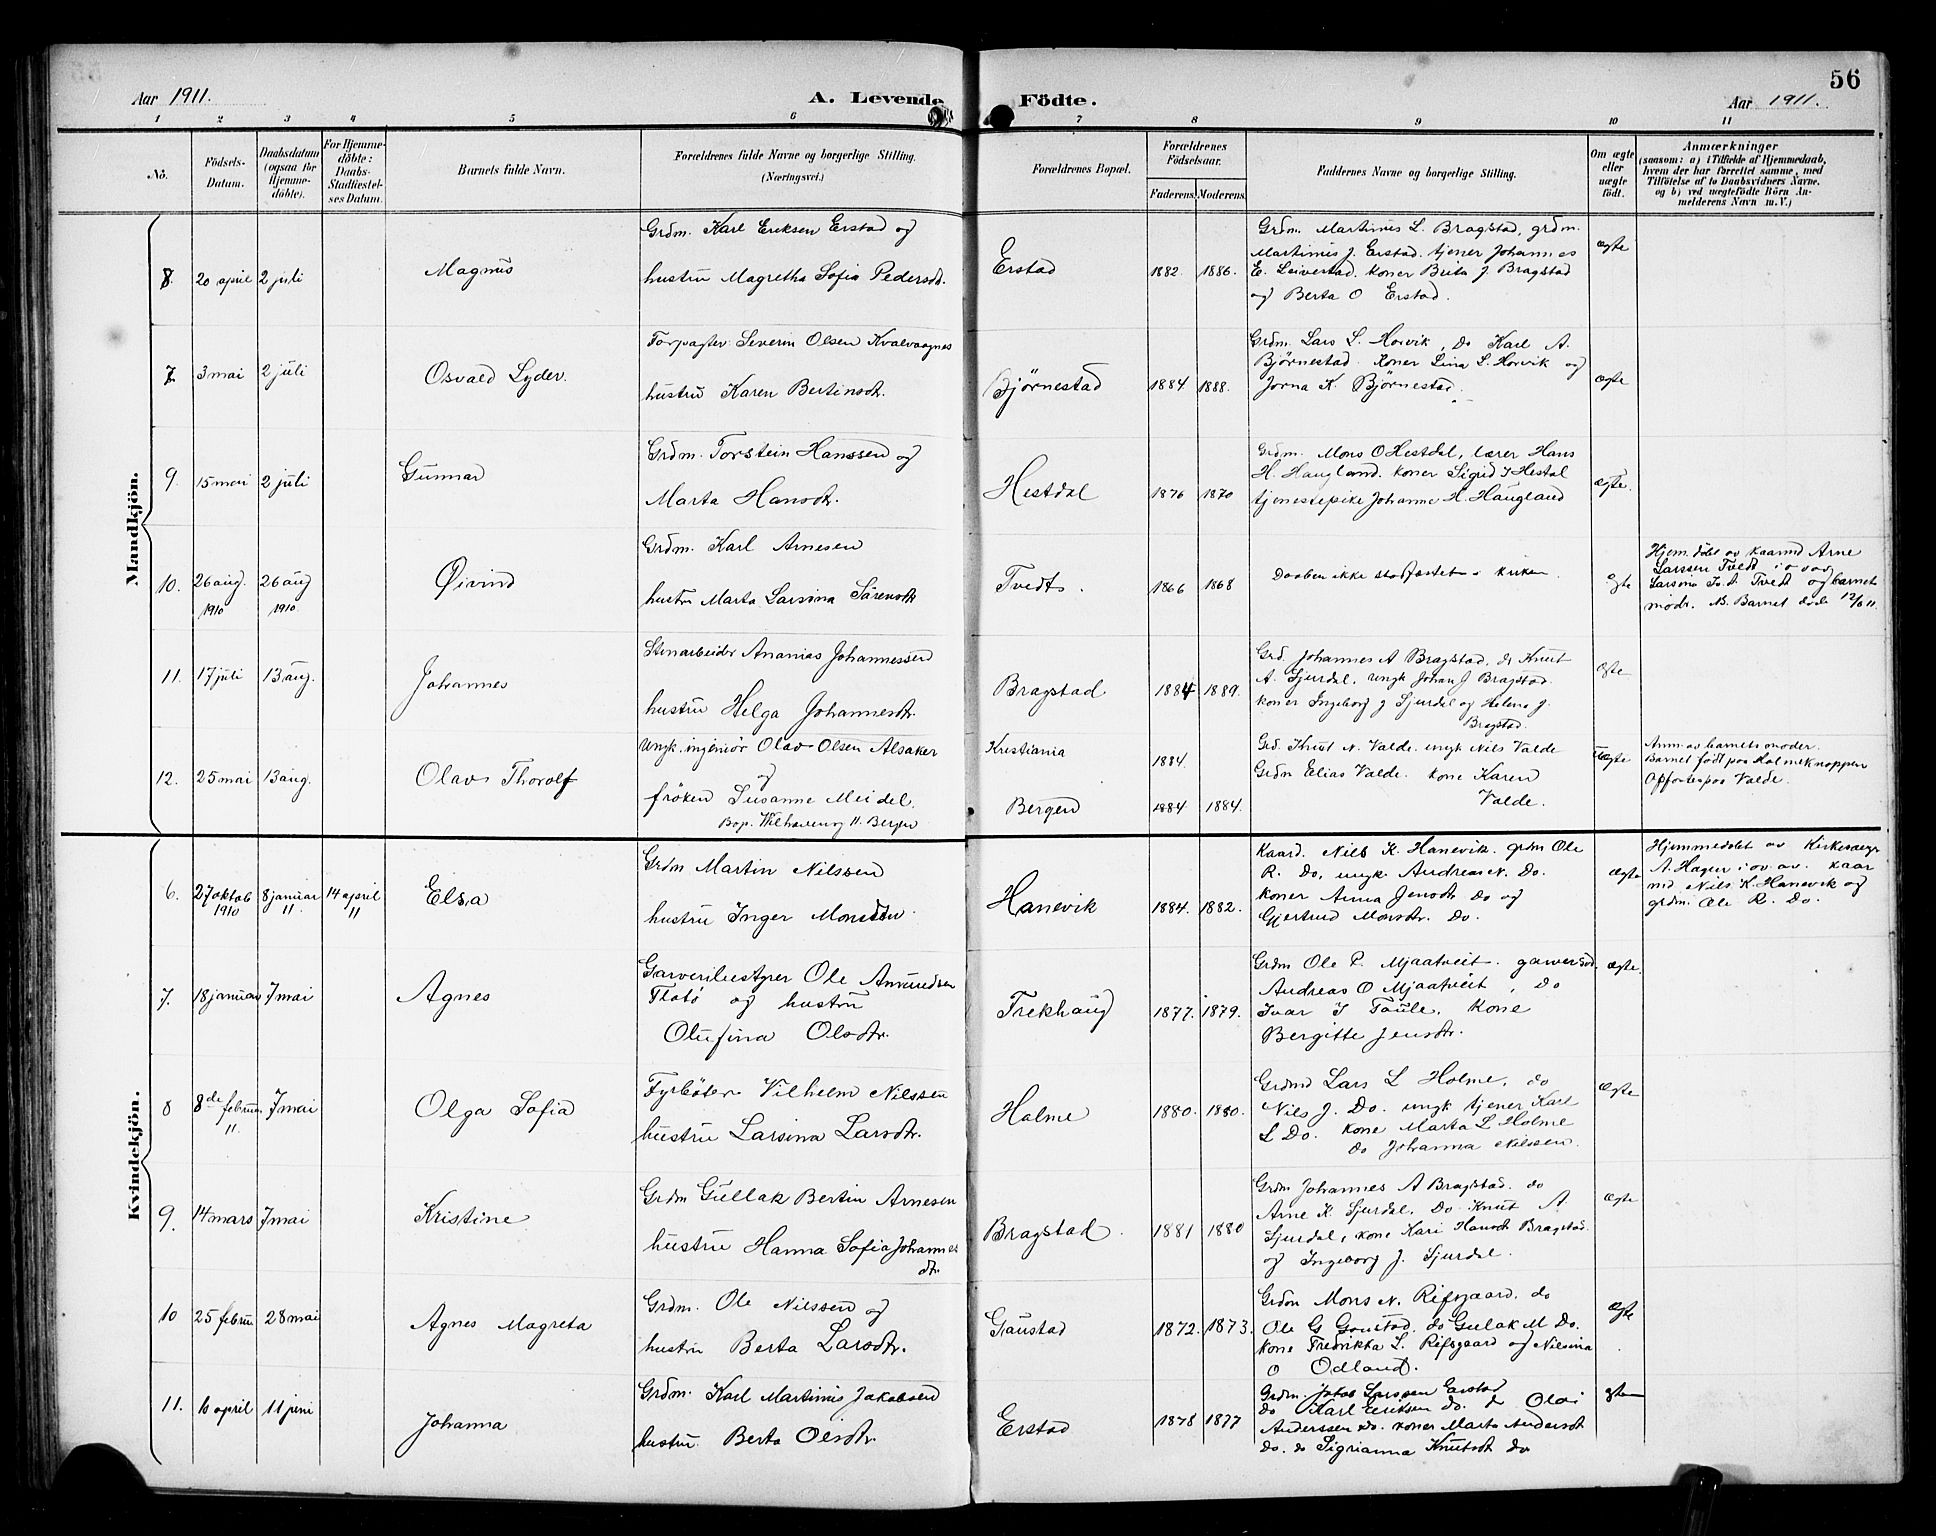 56
Aar 1911.
A. Levende Födte.
Aar 1911.
1 2 3 4 5 6 7 8 9 10 11
No.
Födsels-
Datum.
Daabsdatum
(ogsaa for
Hjemme-
döbte).
For Hjemme-
döbte:
Daabs-
Stadfæstel-
ses Datum.
Barnets fulde Navn.
Forældrenes fulde Navne og borgerlige Stilling.
(Næringsvei.)
Forældrenes Bopæl.
Forældrenes
Födselsaar.
Faderens. Moderens.
Faddernes Navne og borgerlige Stilling.
Om ægte
eller
uægte
født.
Anmærkninger
(saasom: a) i Tilfælde af Hjemmedaab,
hvem der har forrettet samme, med
Tilföielse af to Daabsvidners Navne.
og b) ved uegtefödte Börn An-
melderens Navn m.V.)
Mandkjön.
8. 20 april 2 juli
Magnus
Grdm. Karl Eriksen Erstad og
hustru Magretha Sofia Pedersdtr.
Erstad
1882. 1886.
Grdm. Martinus L. Bragstad, grdm.
Martinus J. Erstad. tjener Johannes
E. Leivestad. koner Brita J Bragstad
og Berta O Erstad.
ægte
7. 3 mai 2 juli
Osvald Lyder.
Forpagter Severin Olsen Kvalvaagnes
hustru Karen Bertinsdtr.
Bjørnestad
1884 1888.
Grdm. Lars L. Horvik, Do Karl A.
Bjørnestad koner Lina L. Horvik og
Jorna K. Bjørnestad.
ægte
9. 15 mai 2 juli
Gunnar
Grdm. Torstein Hanssen og
Marta Hansdtr.
Hestdal
1876 1870
Grdm. Mons O Hestdal, lærer Hans
H. Haugland. koner Sigrid J Hestal
tjenestepike Johanne H. Haugland
ægte.
10. 26 aug. 26 aug
1910 1910
Øivind
Grdm. Karl Arnesen
hustru Marta Larsina Sörensdtr
Tvedt.
1866 1868
Daaben ikke stadfæstet i kirken.
ægte
Hjem. døbt av kaarmd Arne
Larssen Tvedt i o. v. av
Larsina A Tvedt og barnets
moder. NB. Barnet døde 12/6 11.
11. 17 juli 13 aug.
Johannes
Stenarbeider Ananias Johannessen
hustru Helga Johannesdtr.
Bragstad
1884 1889.
Grd. Johannes A Bragstad, do Knut
A. Sjurdal, ungk Johan J Bragstad.
koner Ingeborg J Sjurdal og Helene J.
Bragstad.
ægte
12. 25 mai 13 aug.
Olav Thorolf
Ungk. ingeniør Olav Olsen Alsaker
og
frøken Susanne Meidel.
Bop. 11 Bergen
Kristiania
1884.
Bergen
1884 1884.
Grd. Knut N. Valde. ungk Nils Valde
Grdm Elias Valde. kone Karen
Valde.
Uægte
Anm. av barnets moder.
Barnet født paa Holmeknappen
Opfostres paa Valde.
Kvindekjön.
6. 27 oktob 8 januar 14 april
1910 11 11
Elsa
Grdm Martin Nilssen
hustru Inger Monsdtr.
Hanevik
1884. 1882.
Kaard. Nils K. Hanevik. grdm Ole
R. Do, ungk. Andreas N. Do.
koner Anna Jensdtr Do og
Gjertrud Monsdtr. Do.
ægte
Hjemmedøbt av Kirkesanger
A. Hager i ov. av. kaar
md Nils K. Hanevik og
grdm. Ole R. Do.
7. 18 januar 7 mai
Agnes
Garveribestyrer Ole Amundsen
Flatø og hustru
Olufina Olsdtr.
Frekhaug
1877. 1879.
Grdm Ole P. Mjaatveit. garversvd
Andreas O Mjaatveit, Do
Ivar I Taule, Kone
Bergitte Jensdtr.
ægte.
8 8de februar 7 mai
11.
Olga Sofia
Fyrbøter Vilhelm Nilssen
hustru Larsina Larsdtr.
Holme
1880. 1880.
Grdmd Lars L Holme, do
Nils J. Do. ungk tjener Karl
L Do. kone Marta L Holme
do Johanna Nilssen.
ægte
9. 14 mars 7 mai
Kristine
Grdm Gullak Bertin Arnesen
hustru Hanna Sofia Johannes
dtr.
Bragstad.
1881 1880
Grdm Johannes A Bragstad. do
Arne K. Sjurdal, Do Knut A
Sjurdal, kone Kari Hansdtr Bragstad.
og Ingeborg J. Sjurdal.
ægte
10 25 febru 28 mai
Agnes Magreta
Grdm. Ole Nilssen og
hustru Berta Larsdtr.
Gaustad
1872. 1873.
Grdm Mons N. Rifsgaard. do
Ole G Goustad. do Gulak M Do.
kone Fredrikka L. Rifsgaard og Nilsina
O Odland.
ægte
11. 10 april 11 juni
Johanna
Grdm. Karl Martinus Jakobsen
hustru. Berta Olsdtr.
Erstad
1878 1877
Grdm. Larssen Erstad
do Karl Eriksen do. do Olai
Anderssen do. koner Marta Andersdt
do. do Sigrianna Knutsdt do
ægte